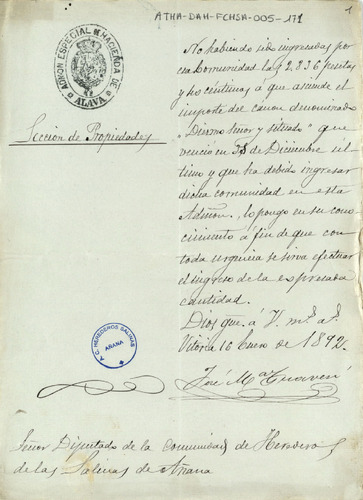 ATHA-DAH-FCHSA-005-171
1
ADMON ESPECIAL DE HACIENDA DE
ALAVA
Sección de Propiedades
No habiendo sido ingresadas por
esa Comunidad las 2,836 pesetas
y 40 céntimos á que asciende el
importe del cánon denominado
"Diezmo Señor y situado" que
venció en 31 de Diciembre úl-
timo y que ha debido ingresar
dicha comunidad en esta
Admon., lo pongo en su cono-
cimiento á fin de que con
toda urgencia se sirva efectuar
el ingreso de la expresada
cantidad.
Dios gue. á V. ms. as.
Vitoria 16 Enero de 1892.
José Ma
P.C. HEREDEROS SALINAS
AÑANA
Señor Diputado de la Comunidad de Herederos
de las Salinas de Añana